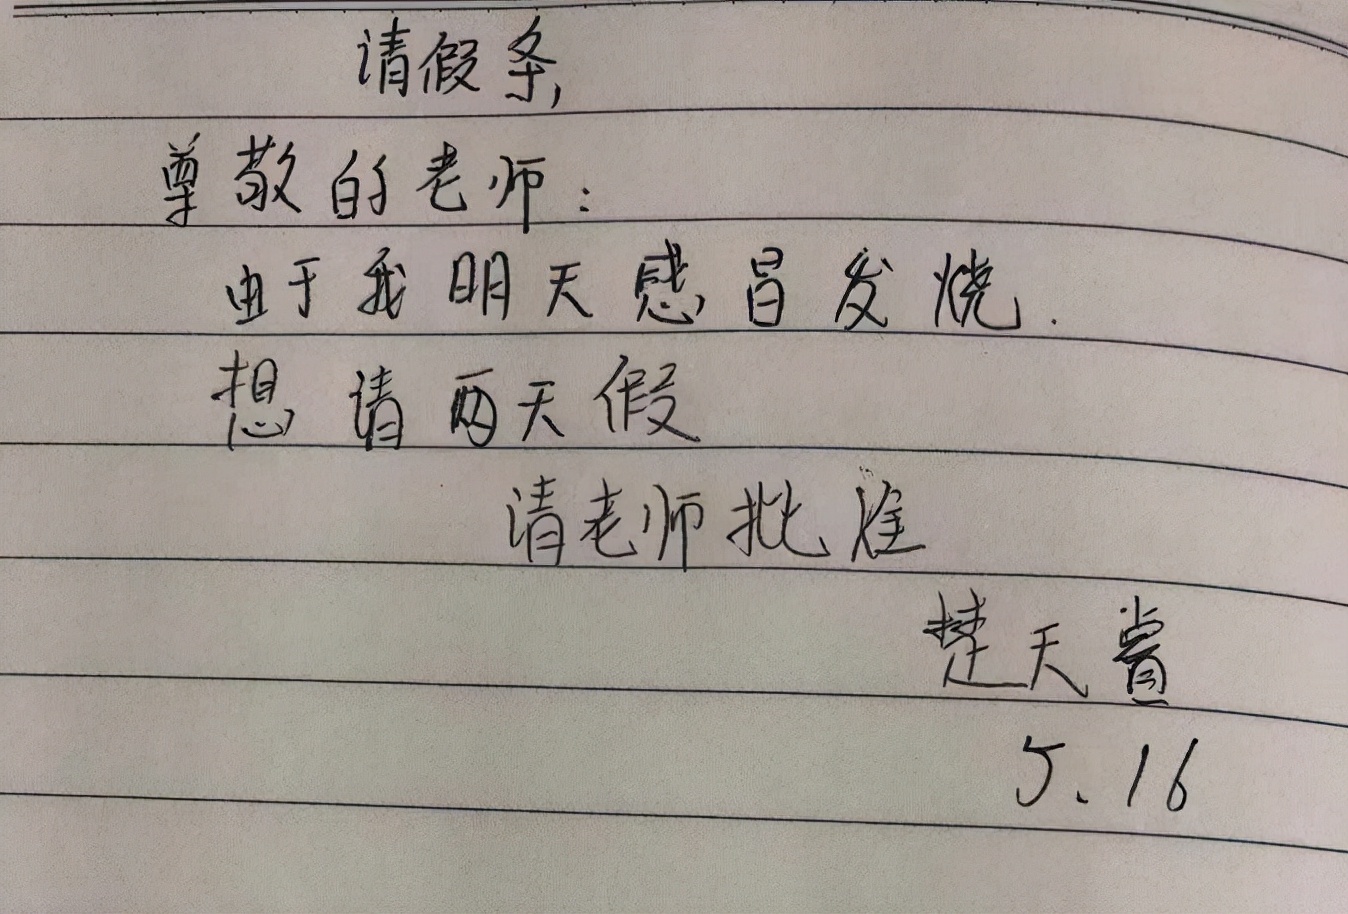 请假条,
尊敬的老师:
由于我明天感冒发烧.
想请两天假
请老师批准
楚天
5.16